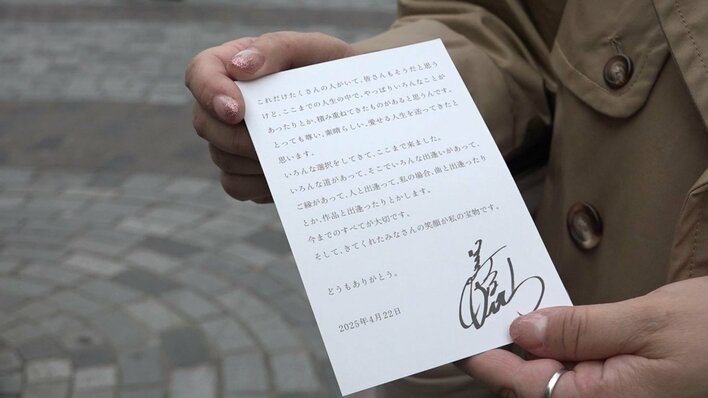 これだけたくさんの人がいて、皆さんもそうだと思う
けど、ここまでの人生の中で、やっぱりいろんなことが
あったりとか、積み重ねてきたものがあると思うんです。
とっても尊い、素晴らしい、愛せる人生を送ってきたと
思います。
いろんな選択をしてきて、ここまで来ました。
いろんな道があって、そこでいろんな出逢いがあって、
ご縁があって、人と出逢って、私の場合、曲と出逢ったり
とか、作品と出逢ったりとかします。
今までのすべてが大切です。
そして、きてくれたみなさんの笑顔が私の宝物です。
どうもありがとう。
2025年4月22日